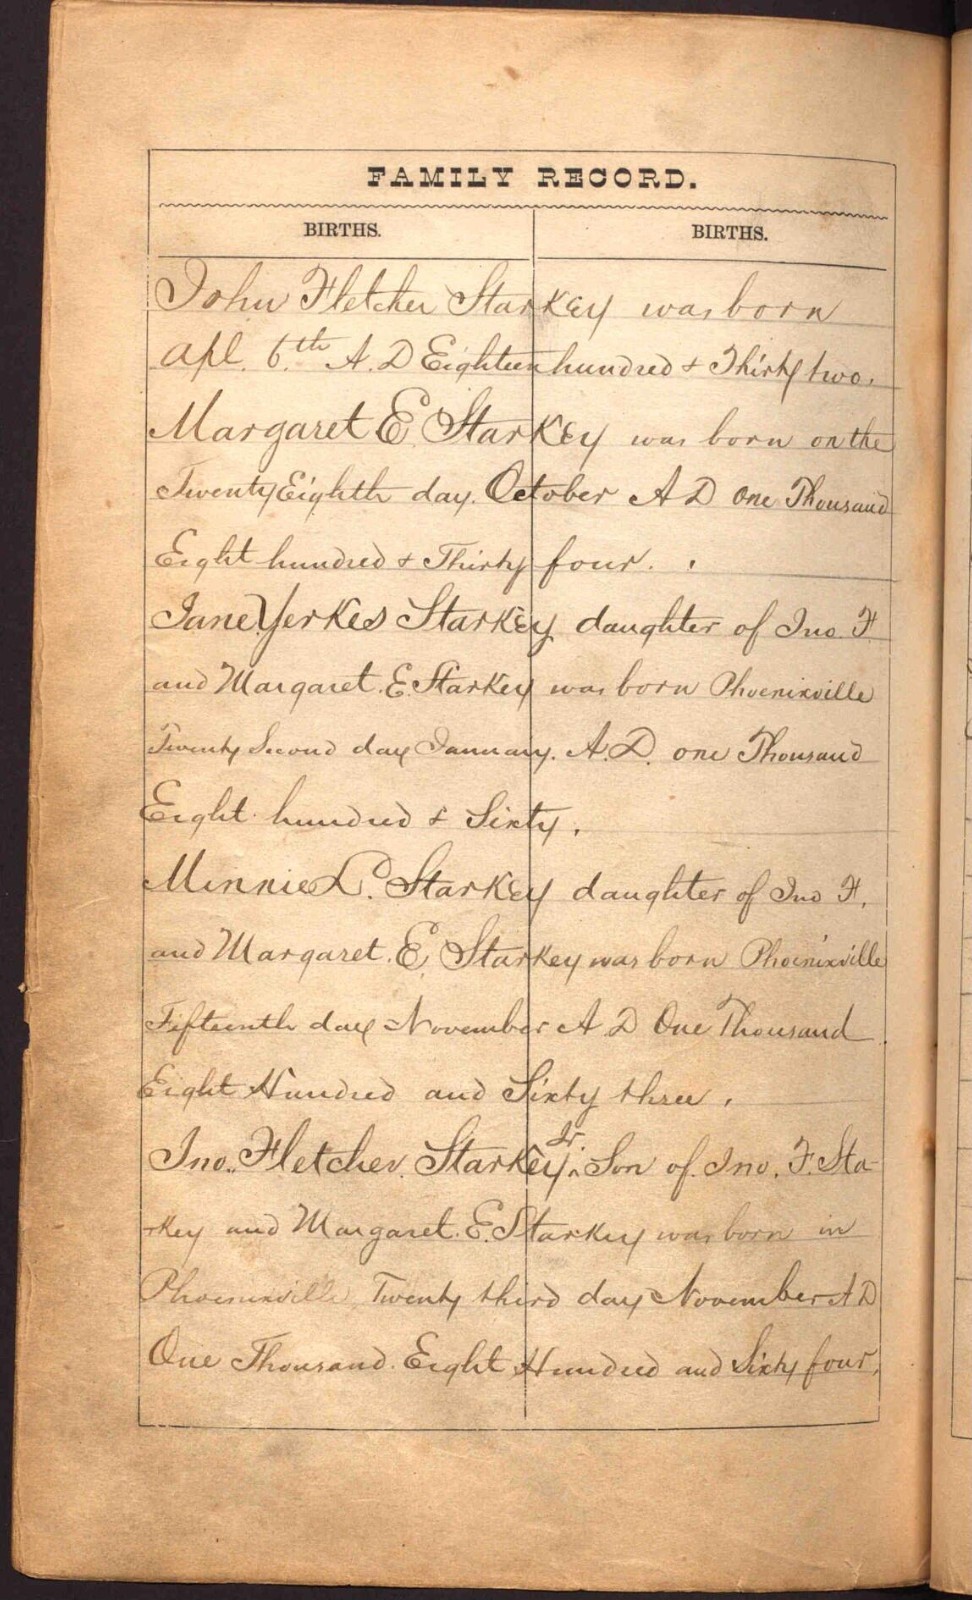 FAMILY RECORD.
BIRTHS. BIRTHS.
John Fletcher Starkey was born
Apl. 6.th A. D Eighteen hundred & Thirty two.
Margaret E. Starkey was born on the
Twenty Eighth day. October A D one Thousand
Eight hundred & Thirty four.
Jane Yerkes Starkey daughter of Jno. F
and Margaret. E. Starkey was born Phoenixville
Twenty Second day January. A. D. one Thousand
Eight hundred & Sixty.
Minnie L. Starkey daughter of Jno F.
and Margaret. E. Starkey was born Phoenixville
Fifteenth day November A D One Thousand
Eight Hundred and Sixty three.
Jno. Fletcher. Starkey Jr. Son of Jno. F. Sta-
-rkey and Margaret. E. Starkey was born in
Phoenixville Twenty third day November A D
One Thousand. Eight Hundred and Sixty four.